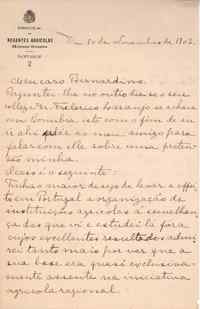 REGENTES AGRICOLAS
SANTAREM
de Novembro de 1902
Meu caro Bernardino
Pergunto-lhe no outro dia se o seu
collega Dr. Frederico Laranjo se achava
em Coimbra, isto com o fim de eu
ir ahi pedir ao meu amigo para
falar com elle sobre uma preten-
são minha.
O caso é o seguinte:
Tinha o maior desejo de levar a effei-
to em Portugal a organização de
instituições agricolas á semelhan-
ça das que vi e estudei lá fora
cujos excellentes resultados admi-
rei tanto mais por ver que a
sua base era quasi exclusiva-
mente assente na iniciativa
agricola regional.